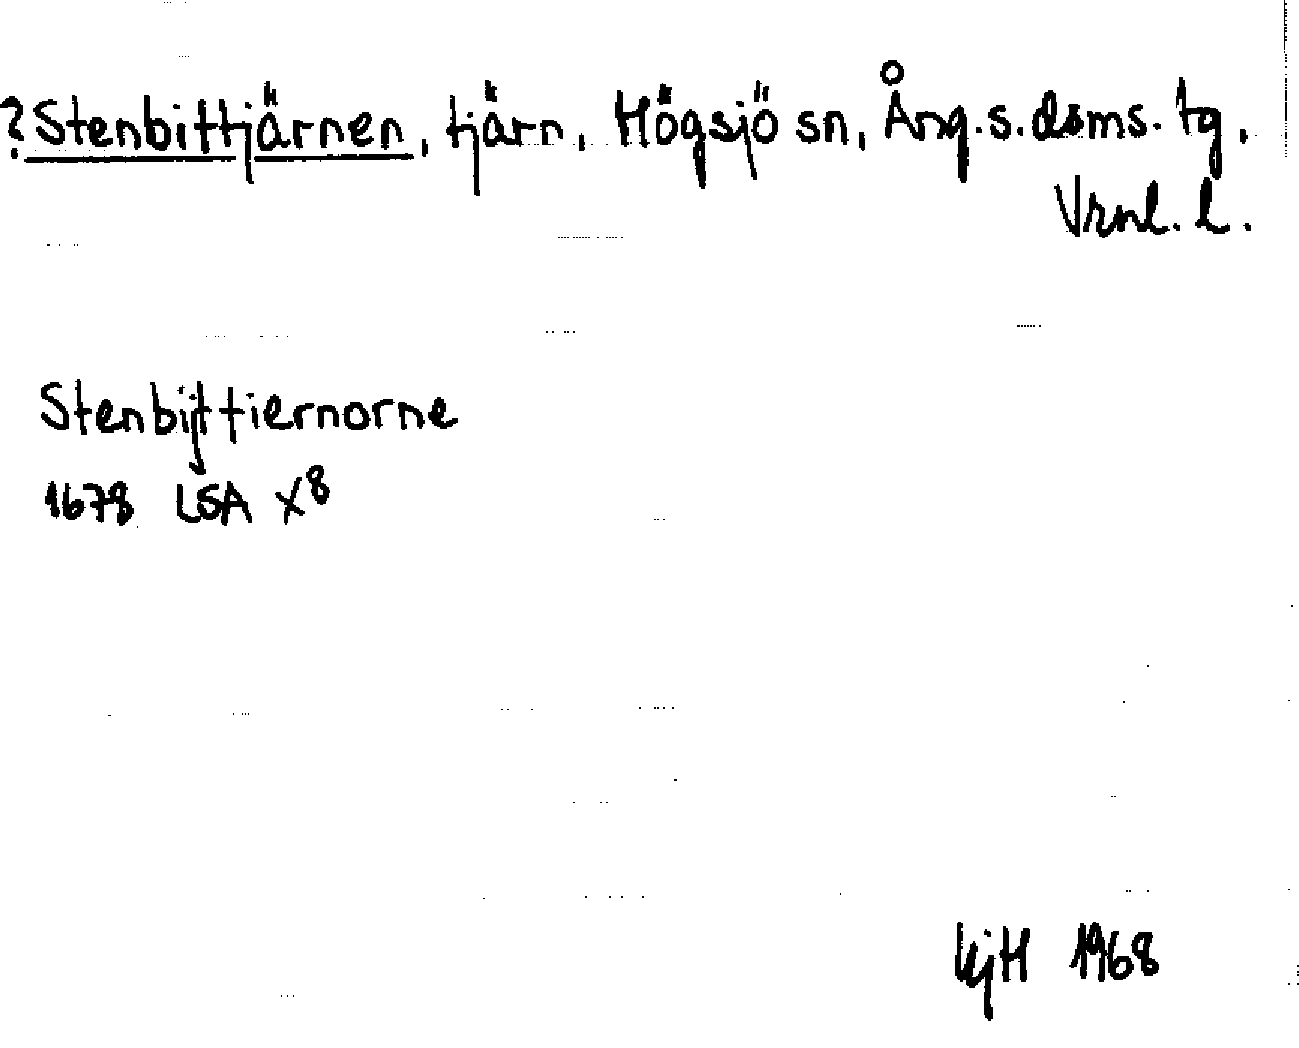 ?Stenbittjärnen, tjärn, Högsjö sn, Ång.s.doms.tg.
Vrnl. l.
Stenbijttiernorne
1678 LSA X8
KjH 1968